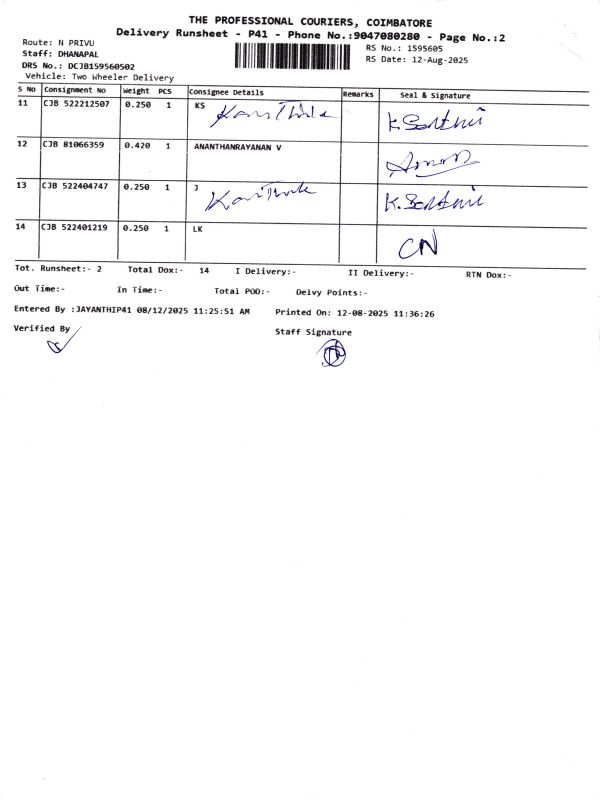 THE PROFESSIONAL COURIERS, COIMBATORE
Delivery Runsheet - P41 - Phone No.:9047080280 - Page No.:2
Route: N PRIVU
RS No.: 1595605
Staff: DHANAPAL
RS Date: 12-Aug-2025
DRS No.: DCJB159560502
Vehicle: Two Wheeler Delivery
S No Consignment No Weight PCS Consignee Details Remarks Seal & Signature
11 CJB 522212507 0.250 1 KS
12 CJB 81066359 0.420 1 ANANTHANRAYANAN V
13 CJB 522404747 0.250 1 J
14 CJB 522401219 0.250 1 LK CN
Tot. Runsheet:- 2 Total Dox:- 14 I Delivery:- II Delivery:- RTN Dox:-
Out Time:- In Time:- Total POD:- Delvy Points:-
Entered By :JAYANTHIP41 08/12/2025 11:25:51 AM Printed On: 12-08-2025 11:36:26
Verified By Staff Signature